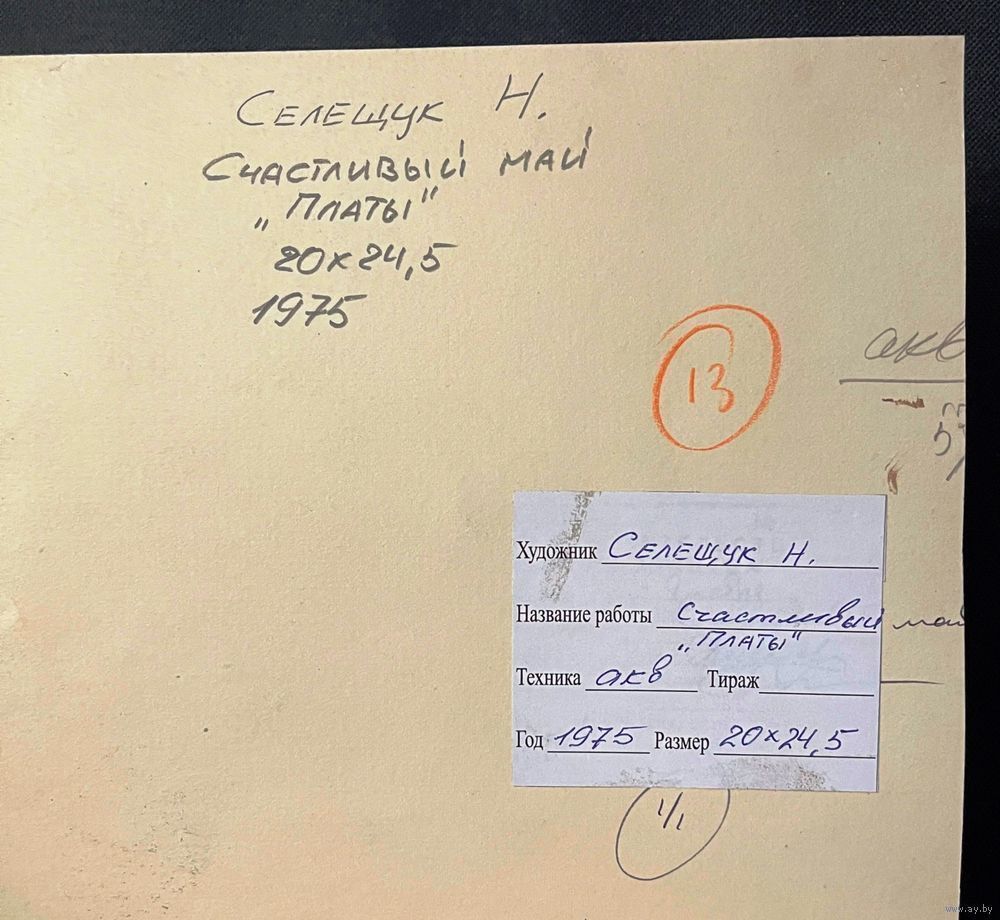 Селещук Н.
Счастливый май
„Платы"
20×24,5
1975
13
акв
Художник Селещук Н.
Название работы Счастливый май
„Платы"
Техника акв Тираж
Год 1975 Размер 20×24,5
1/1
www.ay.by